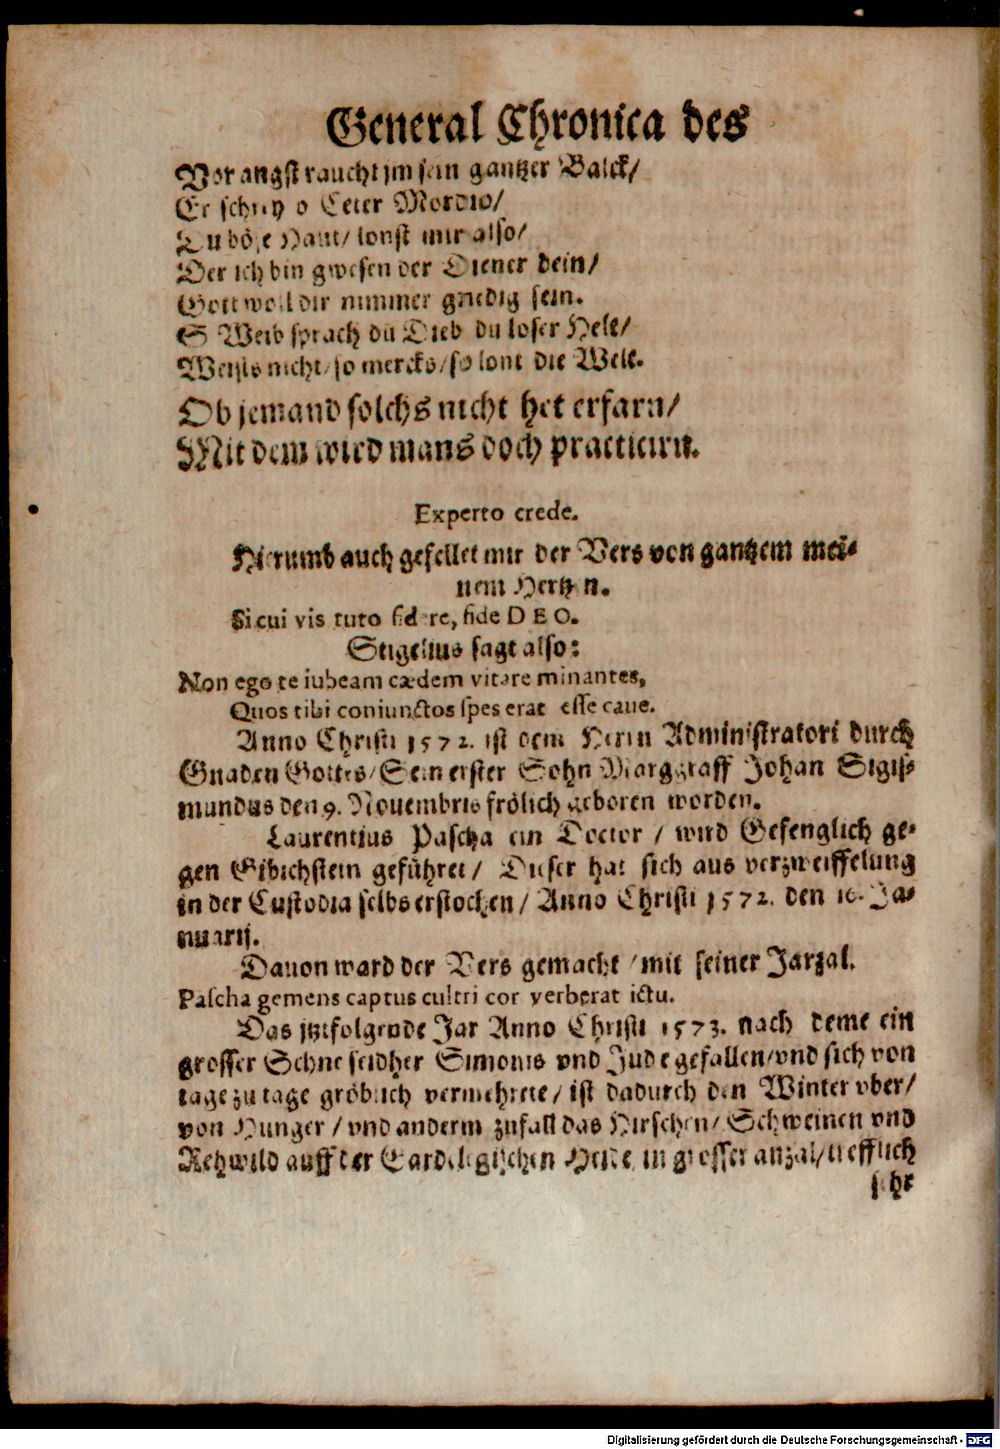 General Chronica des
Vor angst raucht jm sein gantzer Balck/
Er schrey o Ceter Mordio/
Du böse Haut/ lonst mir also/
Der ich bin gwesen der Diener dein/
Gott woll dir nimmer gnedig sein.
S Weib sprach du Dieb du loser Helt/
Weists nicht/ so mercks/ so lont die Welt.
Ob jemand solchs nicht het erfarn/
Mit dem wird mans doch practicirn.
Experto crede.
Hierumb auch gefellet mir der Vers von gantzem mei-
nem Hertzen.
Si cui vis tuto fidere, fide DEO.
Stigelius sagt also:
Non ego te iubeam cædem vitare minantes,
Quos tibi coniunctos spes erat esse caue.
Anno Christi 1572. ist dem Herrn Administratori durch
Gnaden Gottes/ Sein erster Sohn Marggraff Johan Sigis-
mundus den 9. Nouembris frölich geboren worden.
Laurentius Pascha ein Doctor / wird Gefenglich ge-
gen Gibichstein geführet/ Dieser hat sich aus verzweiffelung
in der Custodia selbs erstochen/ Anno Christi 1572. den 16. Ja-
nuarij.
Dauon ward der Vers gemacht /mit seiner Jarzal.
Pascha gemens captus cultri cor verberat ictu.
Das jtztfolgende Jar Anno Christi 1573. nach deme ein
grosser Schne seidher Simonis vnd Jude gefallen/vnd sich von
tage zu tage gröblich vermehrete/ ist dadurch den Winter vber/
von Hunger / vnd anderm zufall das Hirschen/ Schweinen vnd
Rehwild auff der Gardelegischen Heide in grosser anzal/ trefflich
sehr
Digitalisierung gefördert durch die Deutsche Forschungsgemeinschaft - DFG